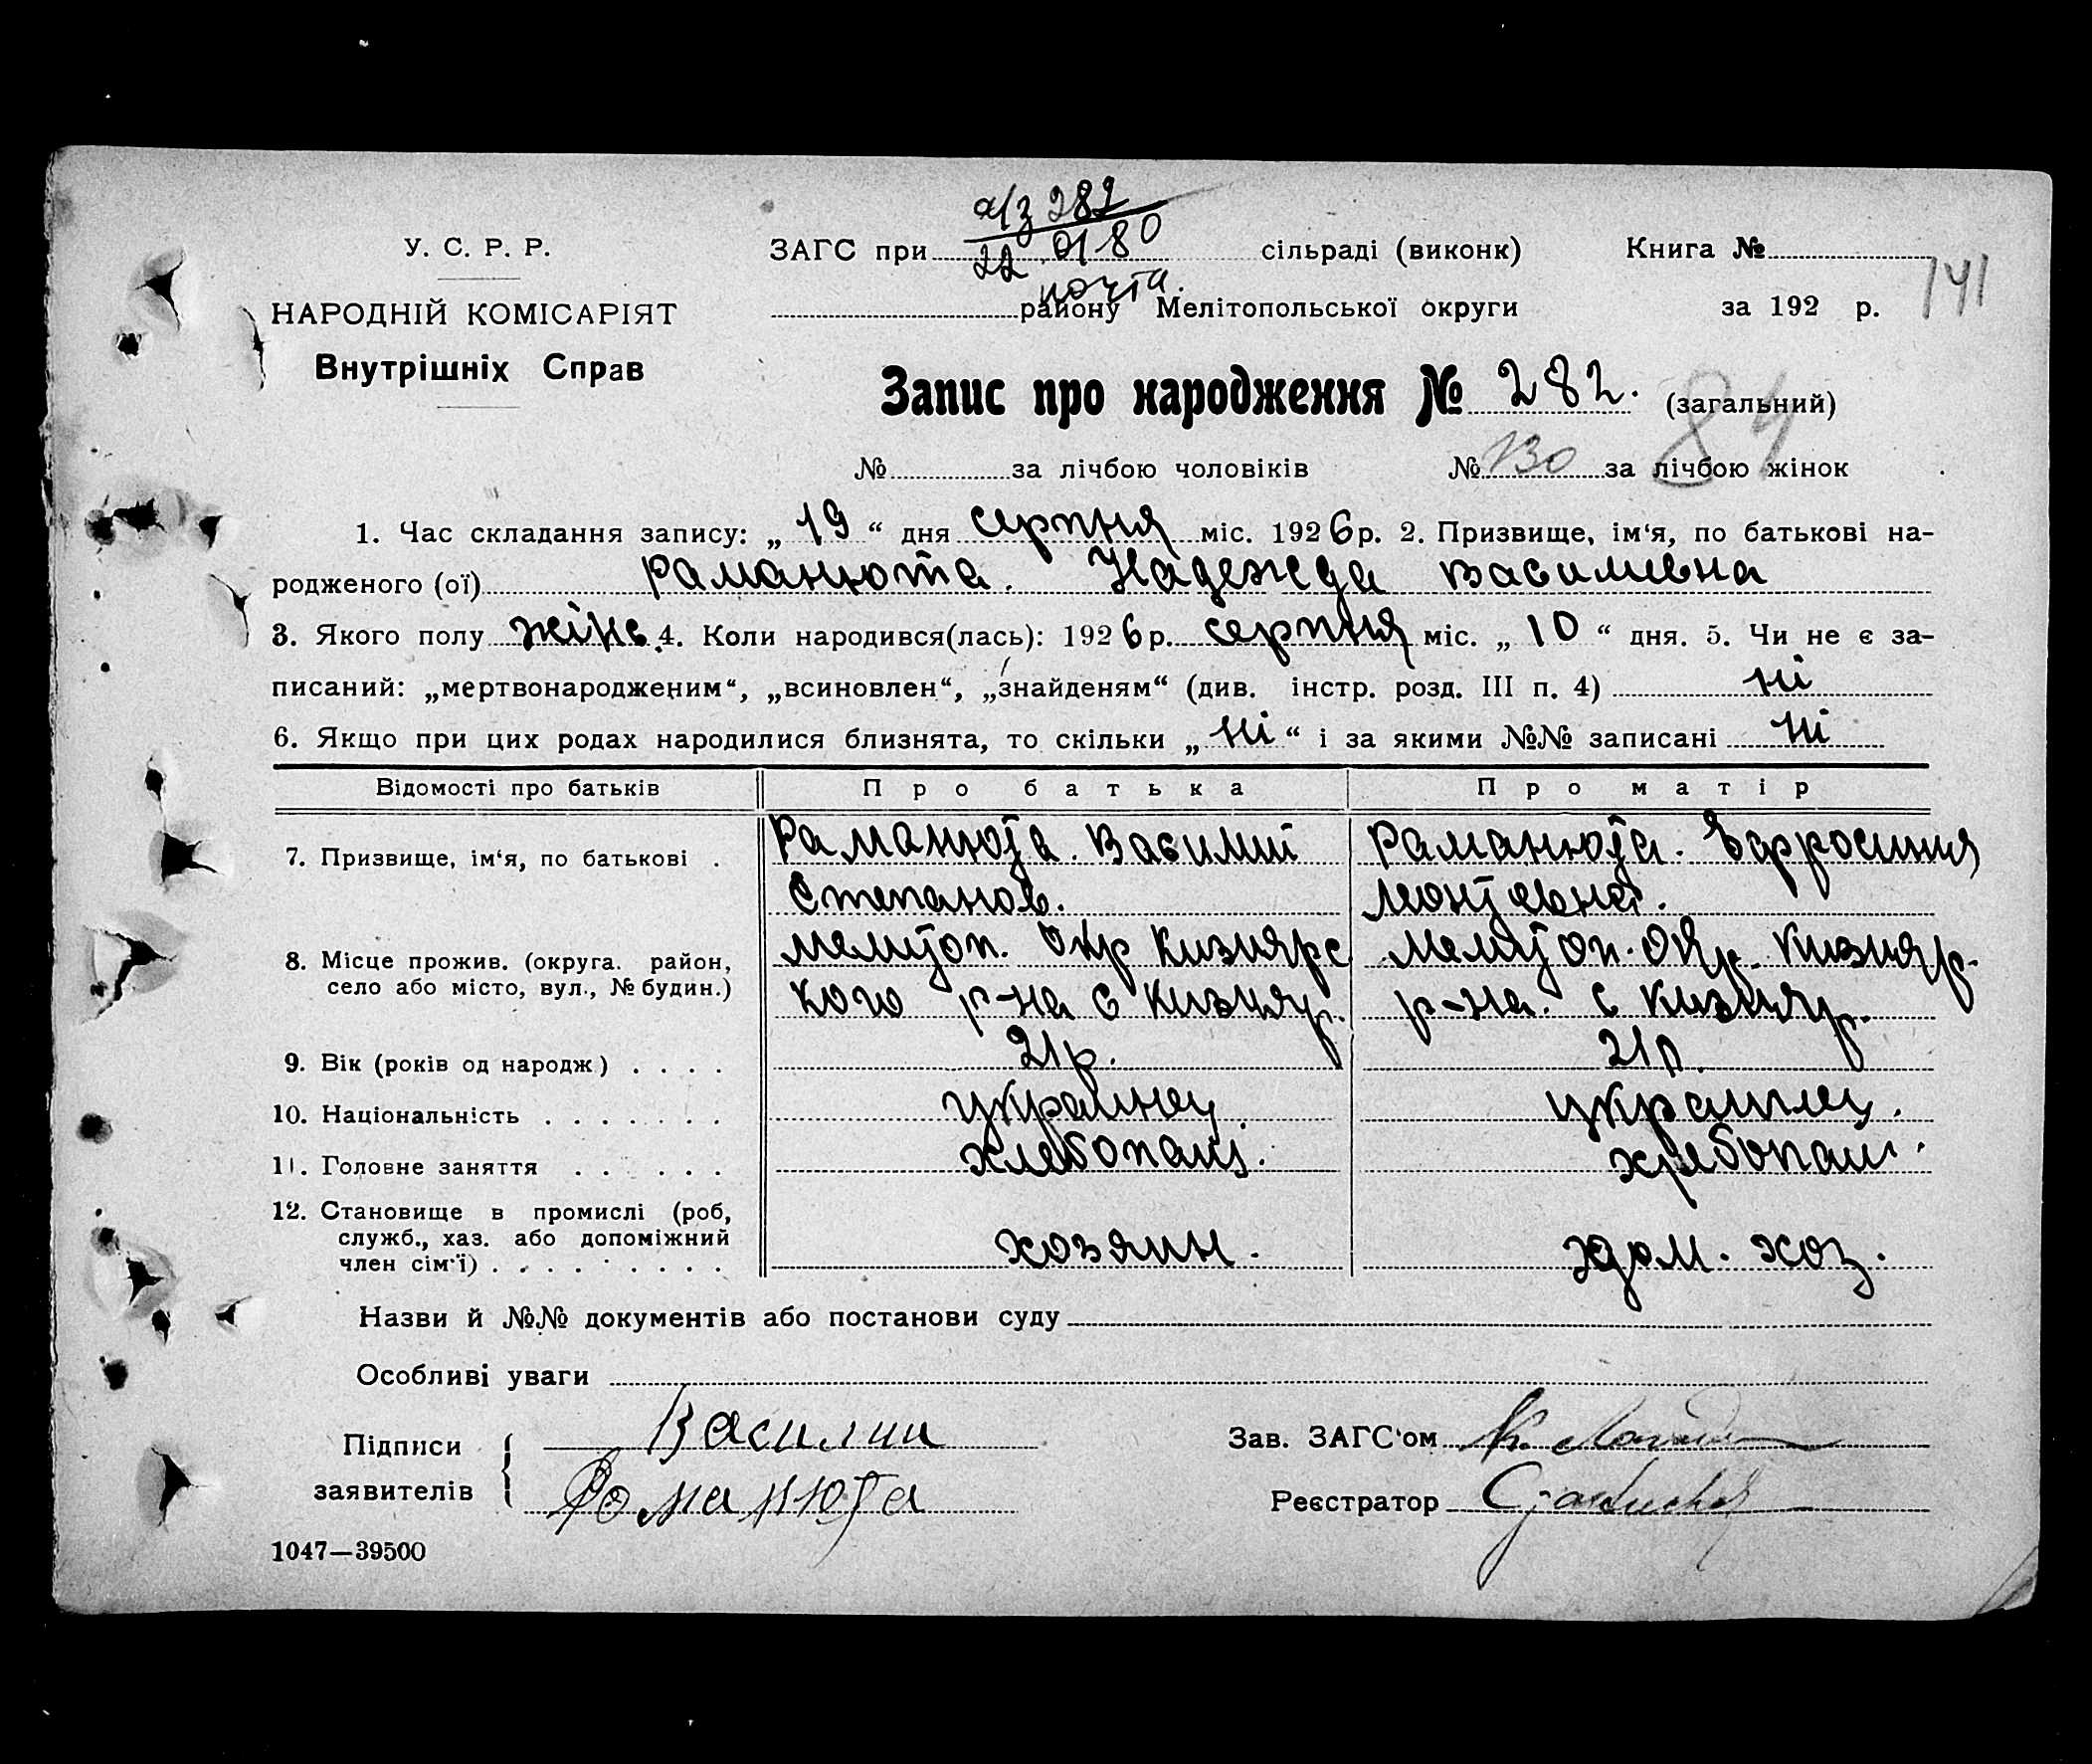 а/з 282
У. С. Р. Р. ЗАГС при 22 01 80 сільраді (виконк) Книга №
почта.
НАРОДНІЙ КОМІСАРІЯТ району Мелітопольської округи за 192 р. 141
Внутрішніх Справ
Запис про народження № 282. (загальний)
84
№ за лічбою чоловіків № 130 за лічбою жінок
1. Час складання запису: „ 19 “ дня серпня міс. 1926 р. 2. Призвище, ім‘я, по батькові на-
родженого (ої) Раманюта. Надежда Василивна
3. Якого полу жінс. 4. Коли народився(лась): 1926 р. серпня міс. „ 10 “ дня. 5. Чи не є за-
писаний: „мертвонародженим“, „всиновлен“, „знайденям“ (див. інстр. розд. III п. 4) ні
6. Якщо при цих родах народилися близнята, то скільки „ ні “ і за якими №№ записані ні
Відомості про батьків Про батька Про матір
7. Призвище, ім‘я, по батькові . Раманюта. Василий Раманюта. Ефросиния
Степанов. Леонтовна.
8. Місце прожив. (округа. район, Мелитоп. Окр Кизиярс Мелитоп. Окр. Кизияр.
село або місто, вул., № будин.) кого р-на с Кизияр. р-на. с Кизияр.
9. Вік (років од народж.) . . . . 21 р. 21 р.
10. Національність . . . . . . . украинец украинец.
11. Головне заняття . . . . . . хлебопаш. хлебопаш.
12. Становище в промислі (роб,
служб., хаз. або допоміжний хозяин. дом. хоз.
член сім‘ї) . . . . . . . . .
Назви й №№ документів або постанови суду
Особливі уваги
Підписи Василий Зав. ЗАГС‘ом
заявителів Романюта Реєстратор
1047—39500